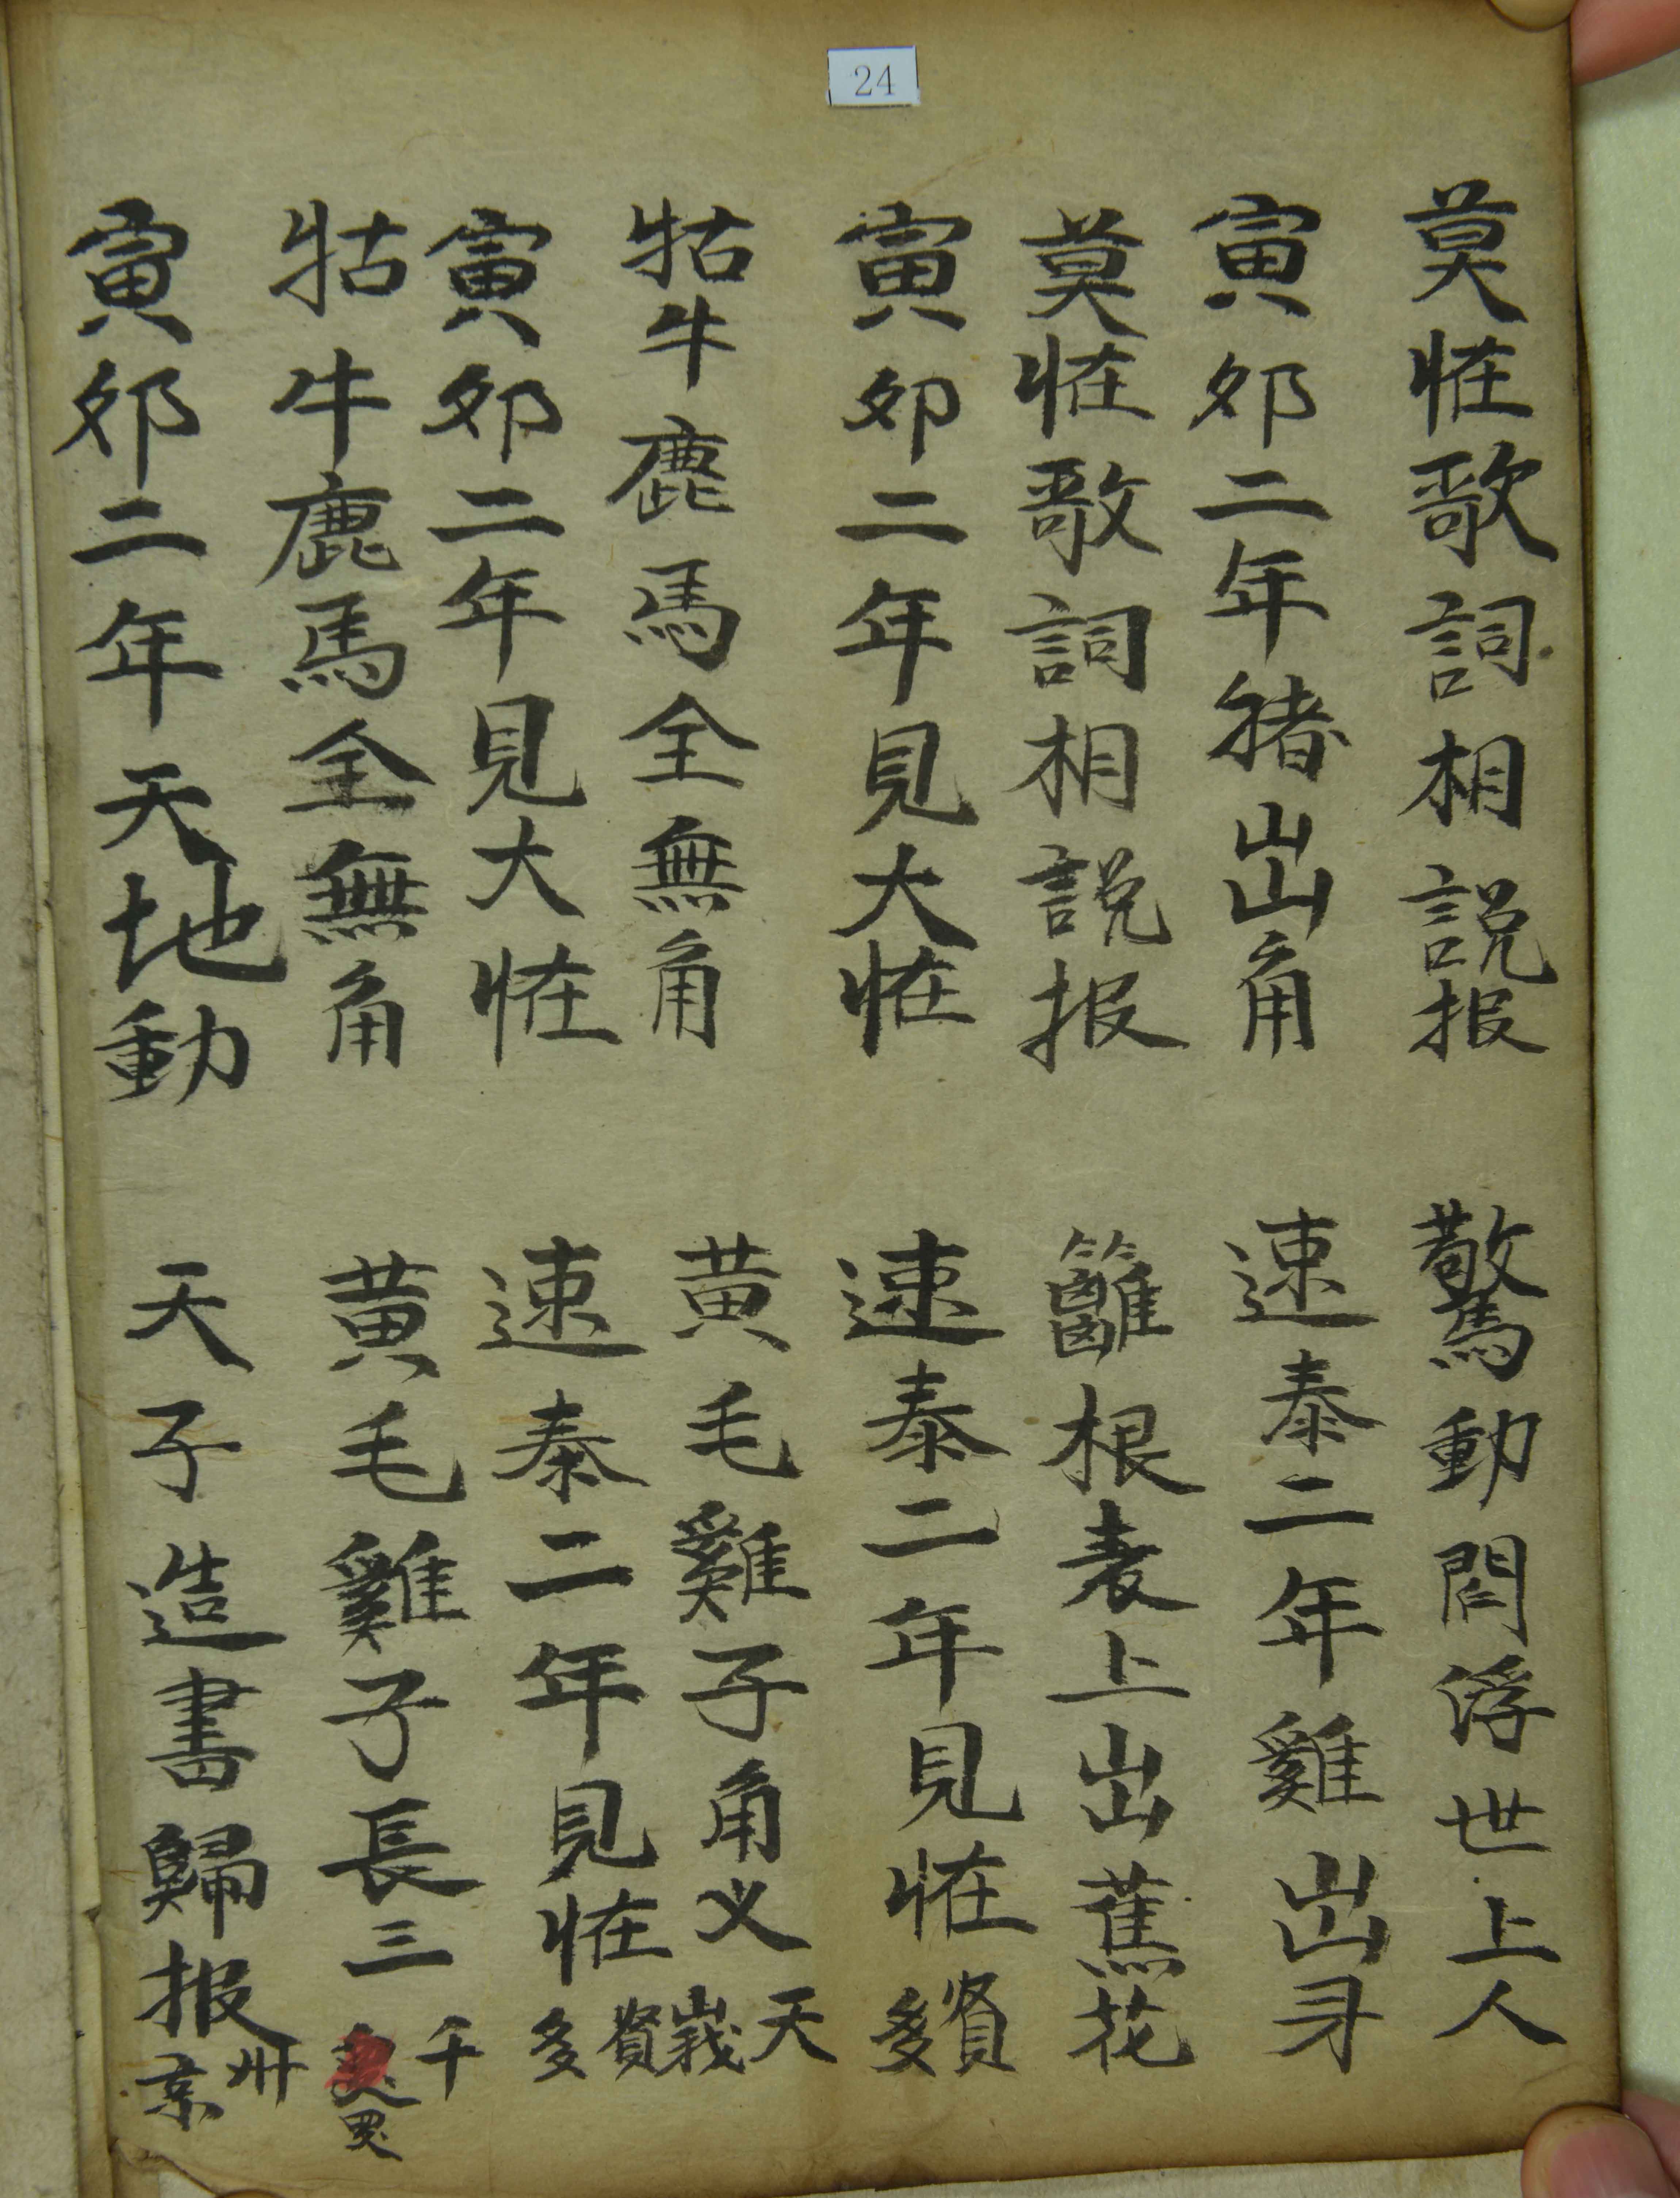 24
莫恠歌詞相説报
驚動閻浮世上人
寅夘二年猪出角
速泰二年雞出身
莫恠歌詞相説报
籬根表上出蕉花
寅夘二年見大恠
速泰二年見恠多賓
牯牛鹿馬全無角
黄毛雞子角义天
寅夘二年見大恠
速泰二年見恠多
牯牛鹿馬全無角
黄毛雞子長三千
寅夘二年天地動
天子造書歸报京州